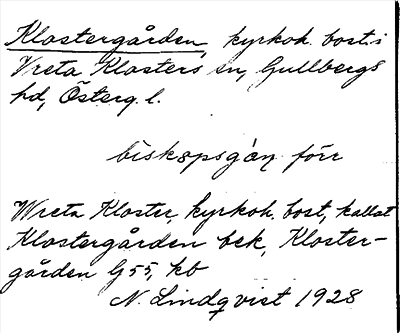 Klostergården, kyrkoh. bost. i
Vreta Klosters sn, Gullbergs
hd, Österg. l.
biskạpsgàn förr
Wreta Kloster, kyrkoh. bost, kallat
Klostergården bek, Kloster-
gården G55, kb
N. Lindqvist 1928